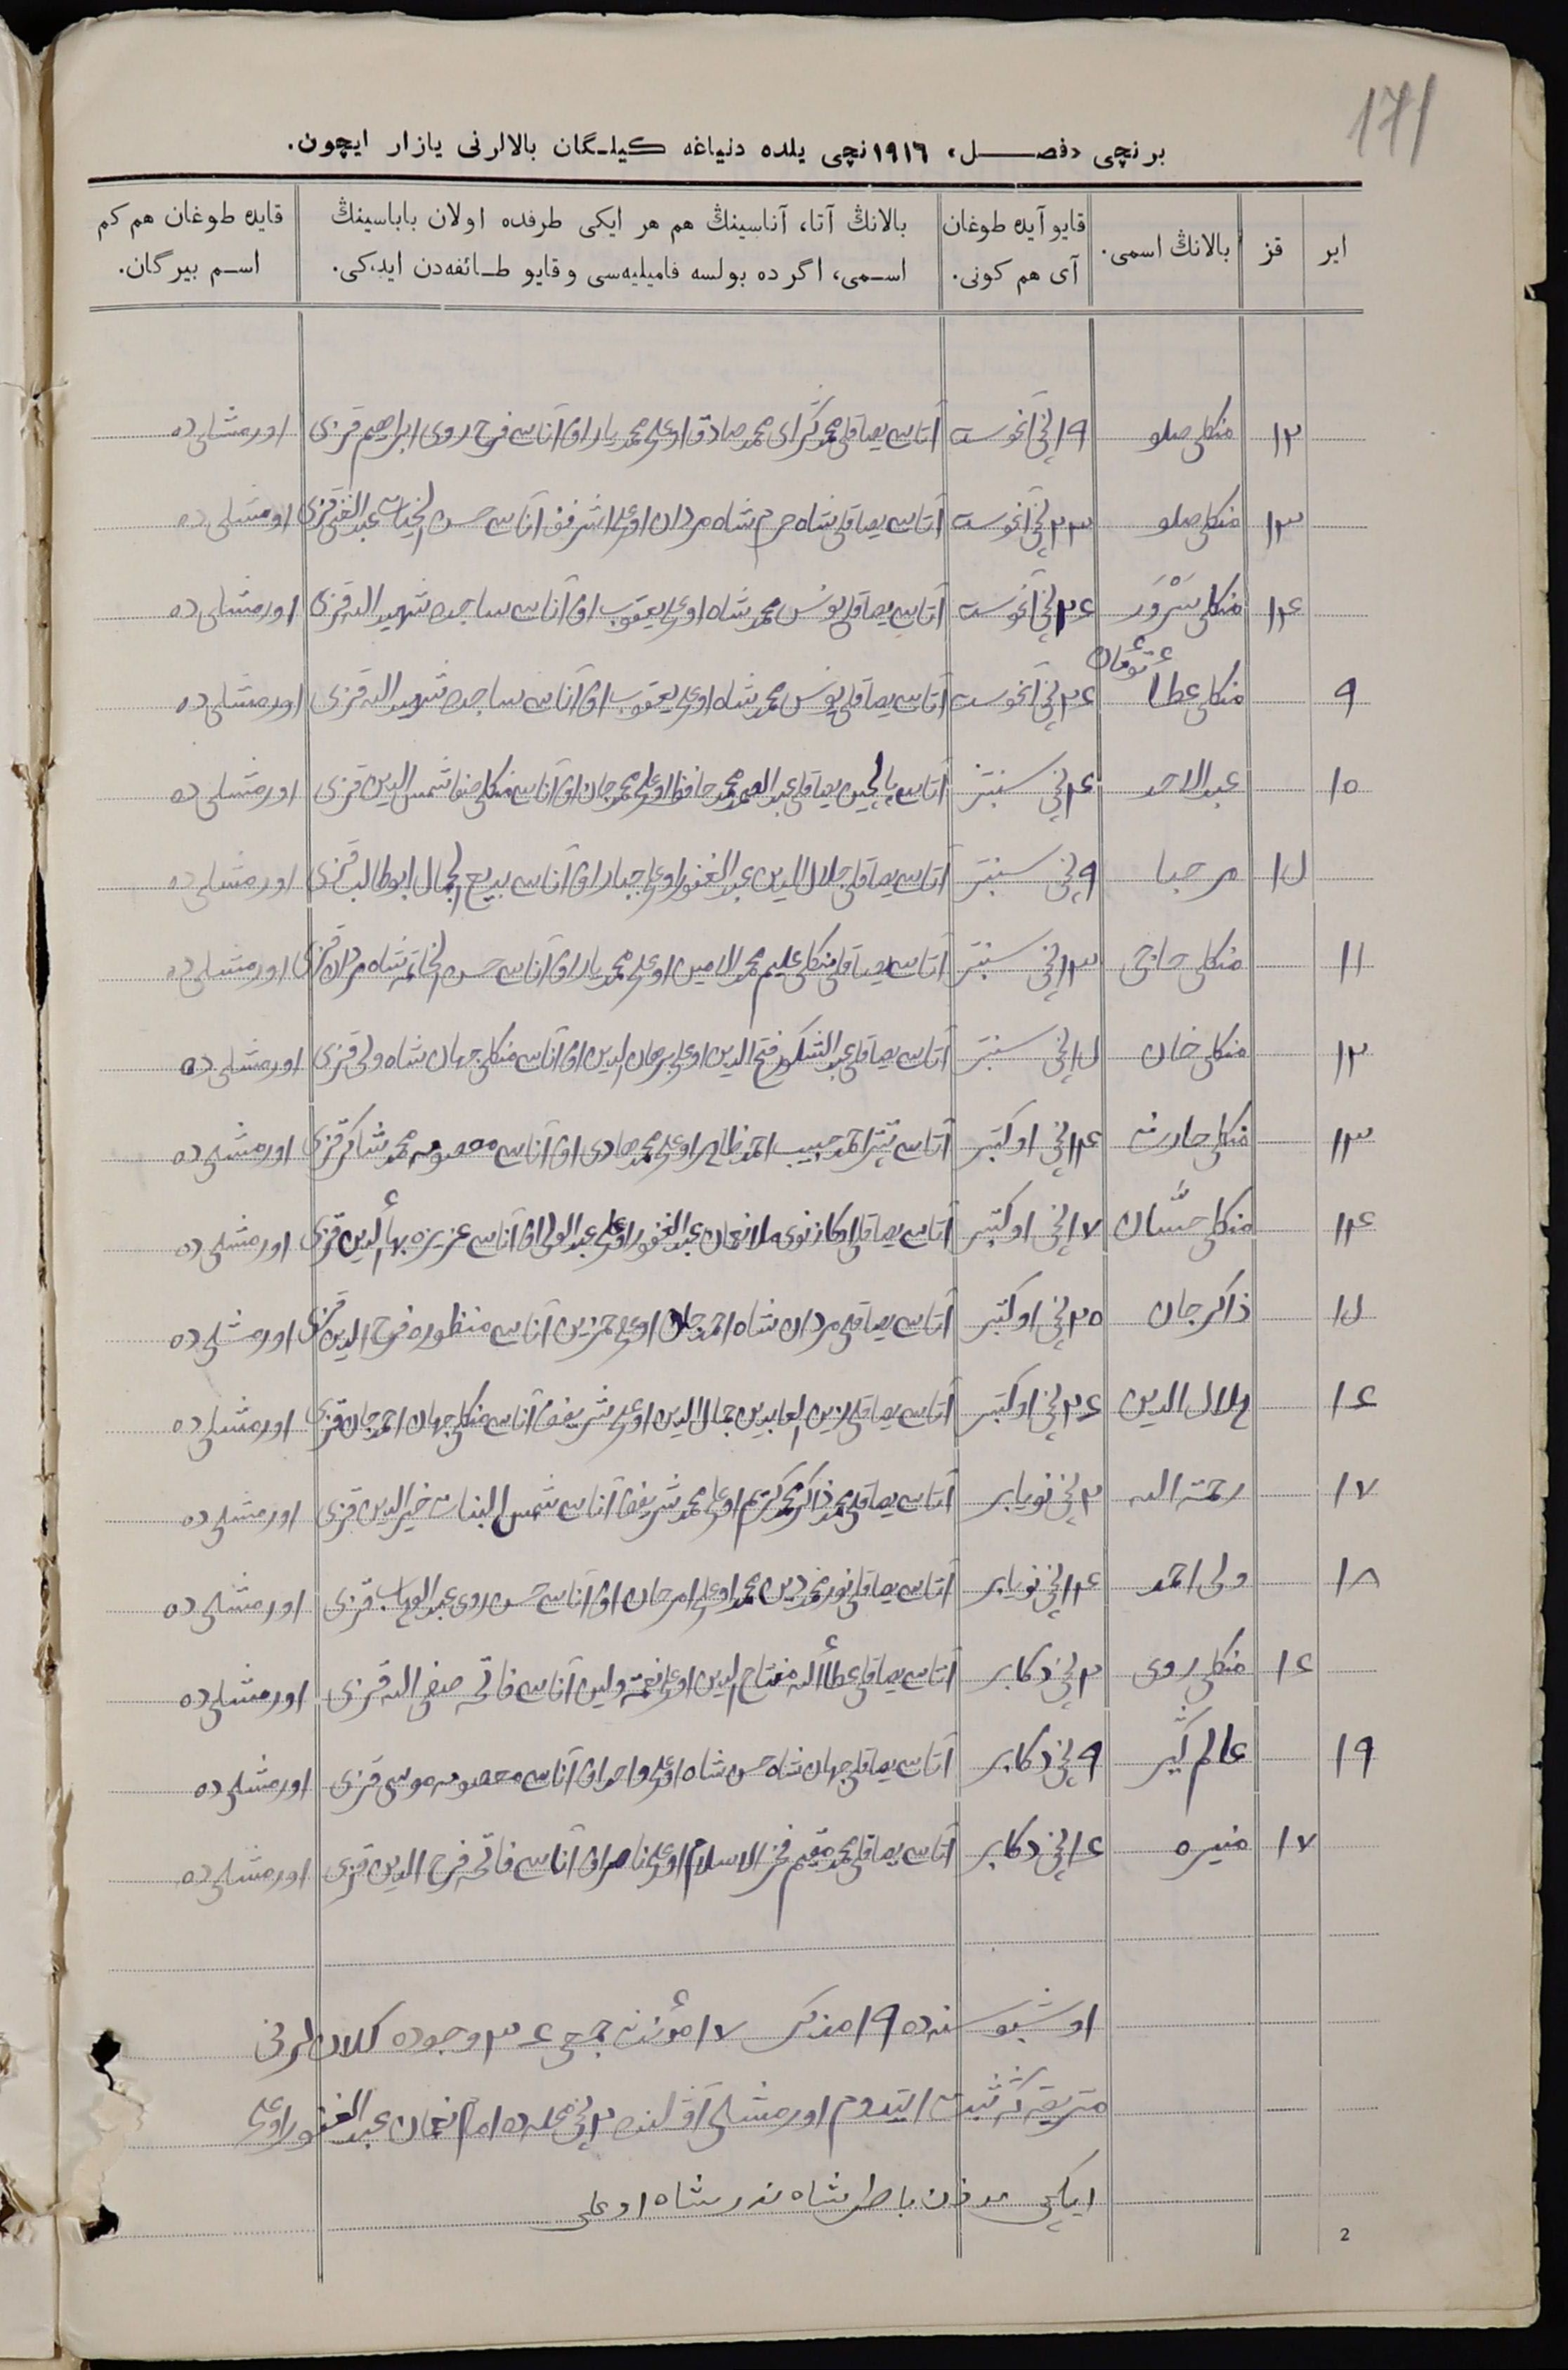 171
برنچی «فصل» ١٩١٦نچی يلده دنياغه كيلگان بالالرنی يازار ايچون.
اير | قز | بالانڭ اسمی. | قايو آيده طوغان آی هم كونی. | بالانڭ آتا، آناسينڭ هم هر ايكی طرفده اولان باباسينڭ اسمی، اگرده بولسه فاميليه‌سی و قايو طائفه‌دن ايدكی. | قايده طوغان هم كم اسم بيرگان.
١٢ منكلی صلو ١٩نچی آغوست آتاسی يصاقلی محمدگرای محمدصادق اوغلی محمديار اوق آناسی فرح روی ابراهيم قزی اورمشلی ده
١٣ منكلی صلو ٢٣نچی آغوست آتاسی يصاقلی شاه حرم شاه مردان اوغلی اشرفف آناسی حسن الحيات عبدالغنی قزی اورمشلی ده
١٤ منكلی سَرْوَر ٢٤نچی آغوست آتاسی يصاقلی يونس محمدشاه اوغلی يعقوب اوق آناسی ساجده شهيدالله قزی اورمشلی ده
توءمان
٩ منكلی عطاء ٢٤نچی آغوست آتاسی يصاقلی يونس محمدشاه اوغلی يعقوب اوق آناسی ساجده شهيدالله قزی اورمشلی ده
١٠ عبدالاحد ٤نچی سنتبر آتاسی يصاقلی محمدحافظ اوغلی محمدجان اوق آناسی منكلی صفا شمس الدين قزی اورمشلی ده
١٥ مرحبا ٩نچی سنتبر آتاسی يصاقلی جلال الدين عبدالغفور اوغلی جبار اوق آناسی بديع الجمال ابوطالب قزی اورمشلی ده
١١ منكلی حاجی ١٣نچی سنتبر آتاسی يصاقلی منكلی عليم محمدالامين اوغلی محمديار اوق آناسی حسن الخاتمه شاه مردان قزی اورمشلی ده
١٢ منكلی خان ١٥نچی سنتبر آتاسی يصاقلی عبدالشكور فتح الدين اوغلی برهان الدين اوق آناسی منكلی جهان شاه ولی قزی اورمشلی ده
١٣ منكلی حارث ١٤نچی اوكتبر آتاسی تپتر احمدحبيب احمدظاهر اوغلی محمدهادی اوق آناسی معصومه محمدشاكر قزی اورمشلی ده
١٤ منكلی حسّان ١٧نچی اوكتبر آتاسی يصاقلی اوكازنوی ملا نعمان عبدالغفور اوغلی عبدالولی اوق آناسی عزيزه بهاءالدين قزی اورمشلی ده
١٥ ذاكرجان ٢٥نچی اوكتبر آتاسی يصاقلی مردان شاه احمدجان اوغلی حمزين آناسی منظوره فرح الدين قزی اورمشلی ده
١٦ هلال الدين ٢٦نچی اوكتبر آتاسی يصاقلی زين العابدين جمال الدين اوغلی شريفف آناسی منكلی جهان احمدجان قزی اورمشلی ده
١٧ رحمت الله ٢نچی نويابر آتاسی يصاقلی محمدذاكر محمدكريم اوغلی محمدشريفف آناسی شمس البنات خيرالدين قزی اورمشلی ده
١٨ ولی احمد ١٤نچی نويابر آتاسی يصاقلی نورمحمد دين محمد اوغلی امرجان اوق آناسی حسن روی عبدالوهاب قزی اورمشلی ده
١٦ منكلی روی ٢نچی دكابر آتاسی يصاقلی عطاءالله مفتاح الدين اوغلی نعمة ولين آناسی فاتحه صفی الله قزی اورمشلی ده
١٩ عالم گير ٩نچی دكابر آتاسی يصاقلی جهان شاه حسن شاه اوغلی واحد اوق آناسی معصومه موسی قزی اورمشلی ده
١٧ منيره ١٦نچی دكابر آتاسی يصاقلی محمدمقيم فخرالاسلام اوغلی ناصر اوق آناسی فاتحه فرح الدين قزی اورمشلی ده
اوشبو سنه ده ١٩ مذكر ١٧ مؤنث جمعی ٣٦ وجوده كلانلرنی
متريقه گه ثبت ايتدوم اورمشلی آڤلنده ٢نچی محله ده امام نعمان عبدالغفور اوغلی
ايكنچی مؤذن باطرشاه ندرشاه اوغلی
2